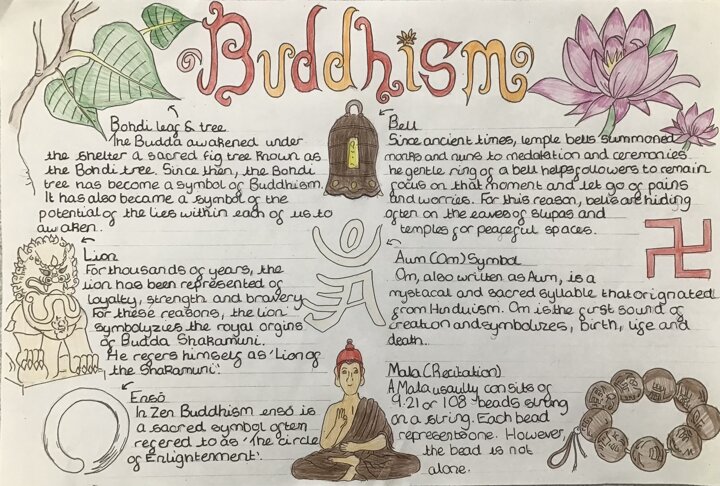 Buddhism
Bohdi leaf & tree
The Budda awakened under
the shelter a sacred fig tree known as
the Bohdi tree. Since then, the Bohdi
tree has become a symbol of Buddhism.
It has also became a symbol of the
potential of the lies within each of us to
aw aken.
Bell
Since ancient times, temple bells summoned
monks and nuns to medatation and ceremonies.
he gentle ring of a bell helps followers to remain
focus on that moment and let go of pains
and worries. For this reason, bells are hiding
often on the eaves of stupas and
temples for peaceful spaces.
Lion
For thousands of years, the
lion has been represented of
loyalty, strength and bravery.
For these reasons, the lion
symbolyzies the royal orgins
of Budda Shakamuni.
He refers himself as 'Lion of
the Shakamuni'.
Aum (Om) Symbol
Om, also written as Aum, is a
mystacal and sacred syllable that orignated
from Hinduism. Om is the first sound of
creation and symbolizes, birth, life and
death.
Ensō
In Zen Buddhism ensō is
a sacred symbol often
refered to as 'The circle
of Enlightenment'.
Mala (Recitation)
A Mala usaully consits of
9.21 or 108 beads strung
on a string. Each bead
represents one. However,
the bead is not
alone.